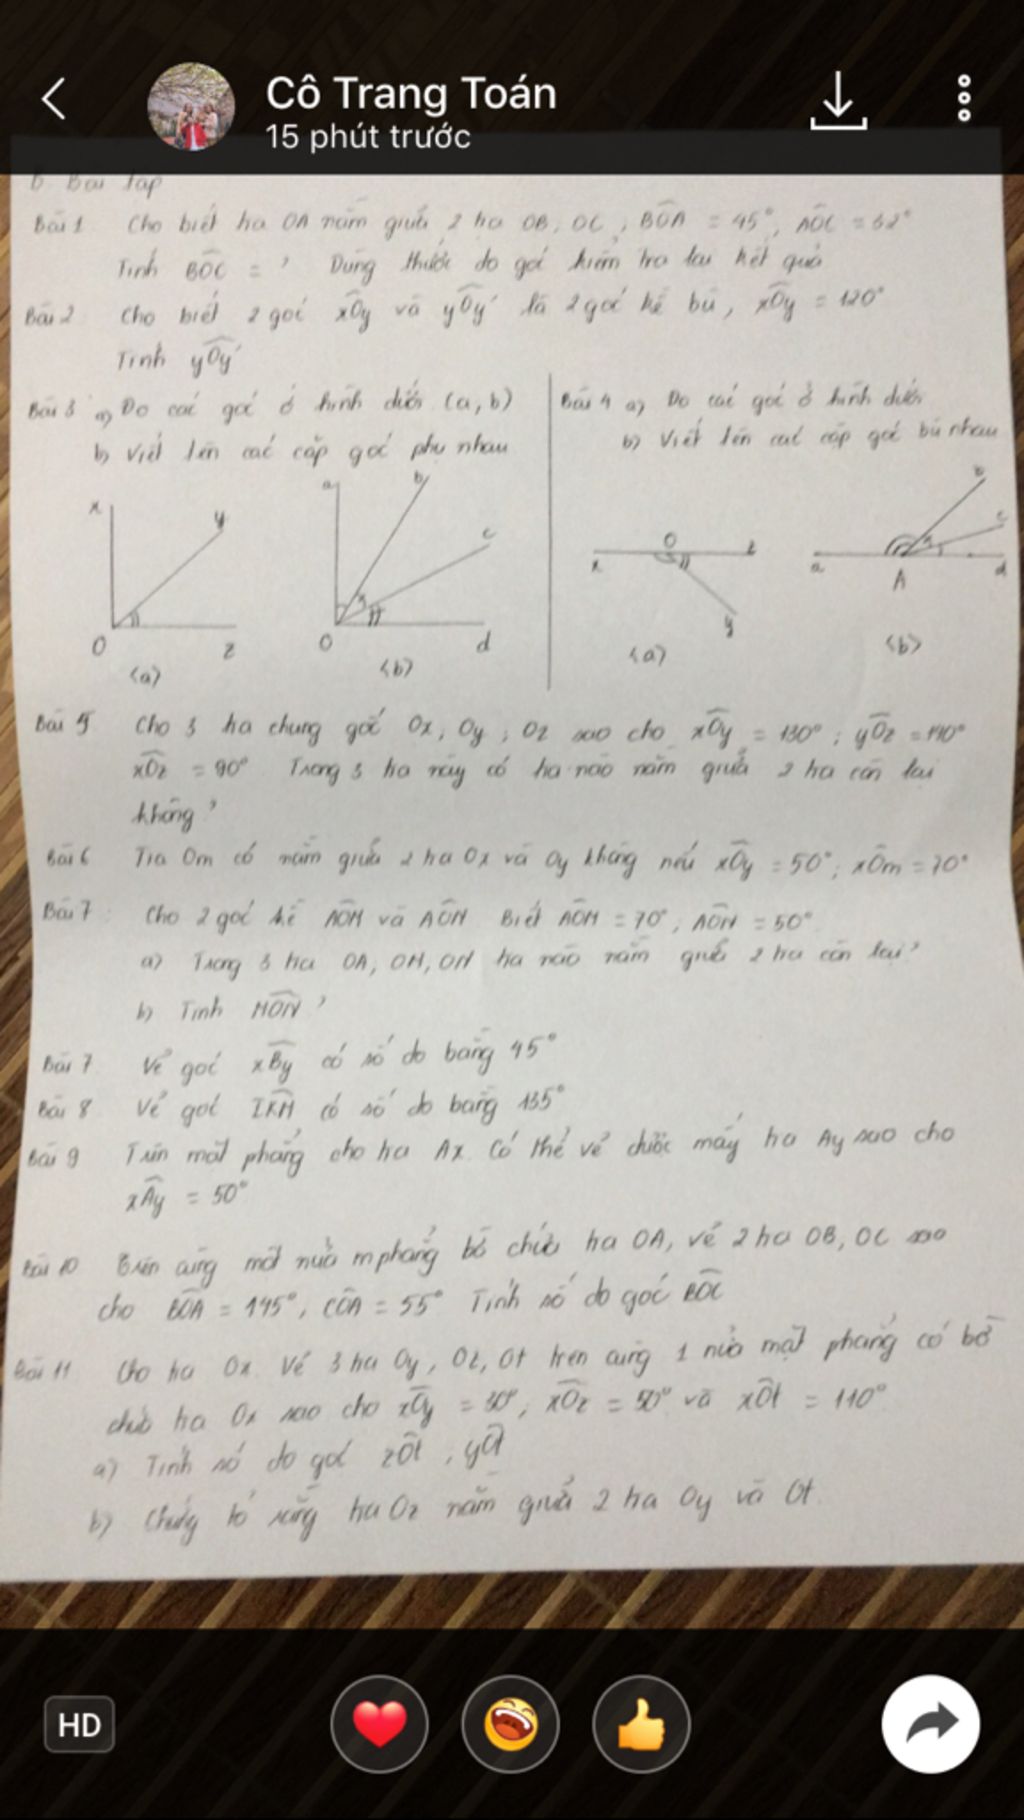 Cô Trang Toán
15 phút trước
b Bài tập
Bài 1 Cho biết tia OA nằm giữa 2 tia OB, OC, BOA = 45°, AOC = 32°
Tính BOC = ? Dùng thước đo góc kiểm tra lại kết quả
Bài 2 Cho biết 2 góc xOy và yOy' là 2 góc kề bù, xOy = 120°
Tính yOy'
Bài 3 a) Đo các góc ở hình dưới (a, b)
b) Viết tên các cặp góc phụ nhau
Bài 4 a) Đo các góc ở hình dưới
b) Viết tên các cặp góc bù nhau
x y O z (a)
a b c O d (b)
x O z y (a)
a A c d (b)
Bài 5 Cho 3 tia chung gốc Ox, Oy, Oz sao cho xOy = 130°; yOz = 140°
xOz = 90° Trong 3 tia này có tia nào nằm giữa 2 tia còn lại
không?
Bài 6 Tia Om có nằm giữa 2 tia Ox và Oy không nếu xOy = 50°; xOm = 70°
Bài 7 Cho 2 góc kề AOM và AON Biết AOM = 70°, AON = 50°
a) Trong 3 tia OA, OM, ON tia nào nằm giữa 2 tia còn lại?
b) Tính MON?
Bài 7 Vẽ góc xBy có số đo bằng 45°
Bài 8 Vẽ góc IKM có số đo bằng 135°
Bài 9 Trên mặt phẳng cho tia Ax. Có thể vẽ được mấy tia Ay sao cho
xAy = 50°
Bài 10 Trên cùng một nửa mphẳng bờ chứa tia OA, vẽ 2 tia OB, OC sao
cho BOA = 145°, COA = 55° Tính số đo góc BOC
Bài 11 Cho tia Ox. Vẽ 3 tia Oy, Oz, Ot trên cùng 1 nửa mặt phẳng có bờ
chứa tia Ox sao cho xOy = 30°, xOz = 50° và xOt = 110°
a) Tính số đo góc zOt, yOt
b) Chứng tỏ rằng tia Oz nằm giữa 2 tia Oy và Ot.
HD